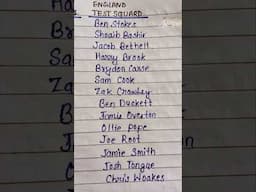 ENGLAND
TEST SQUARD
Ben Stokes
Shoaib Bashir
Jacob Bethell
Harry Brook
Brydon Carse
Sam Cook
Zak Crawley
Ben Duckett
Jamie Overton
Ollie Pope
Joe Root
Jamie Smith
Josh Tongue
Chris Woakes